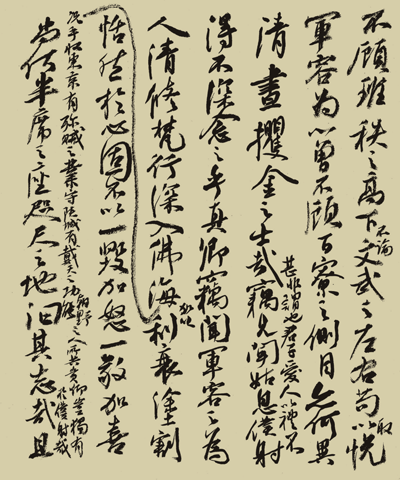 不顧班秩之高下不論文武之左右苟以取悅
軍容為心曾不顧百寮之側目亦何異
清晝攫金之士哉竊見聞姑息僕射
甚非謂也君子愛人以禮不
得不深念之乎真卿竊聞軍容之為
人清修梵行深入佛海加以利衰塗割
恬然於心固不以一毀加怒一敬加喜
況乎收東京有殄賊之業守陝城有戴天之功朝野之人所共貴仰豈獨有
於僕射哉
尚何半席之座咫尺之地能汩其志哉且